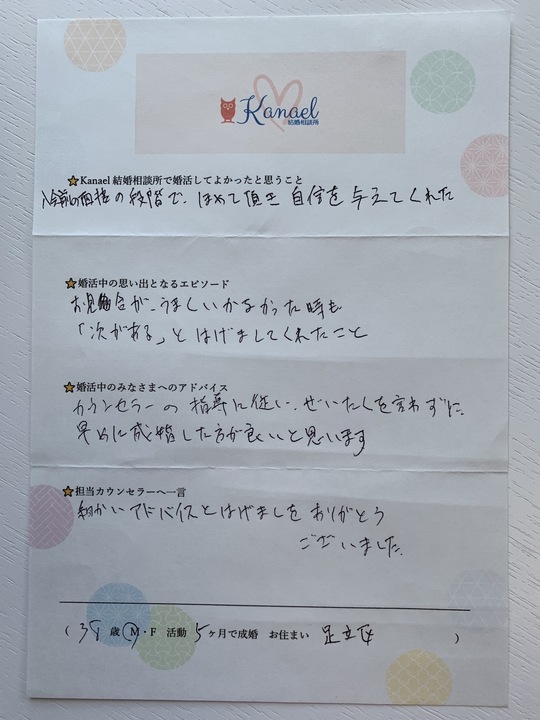 Kanael
結婚相談所
⭐Kanael 結婚相談所で婚活してよかったと思うこと
入会前の面接の練習で、ほめて頂き 自信を与えてくれた
⭐婚活中の思い出となるエピソード
お見合が、うまくいかなかった時も
「次がある」とはげましてくれたこと
⭐婚活中のみなさまへのアドバイス
カウンセラーの指導に従い、ぜいたくを言わずに
早めに成婚した方が良いと思います
⭐担当カウンセラーへ一言
細かいアドバイスとはげましをありがとう
ございました。
( 歳 M・F 活動 5ヶ月で成婚 お住まい 足立区 )